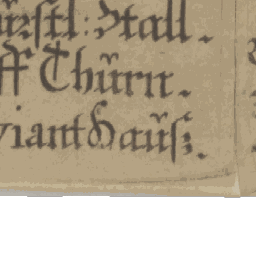 ürstl: Stall.
ff Thürn.
viant Hauß.